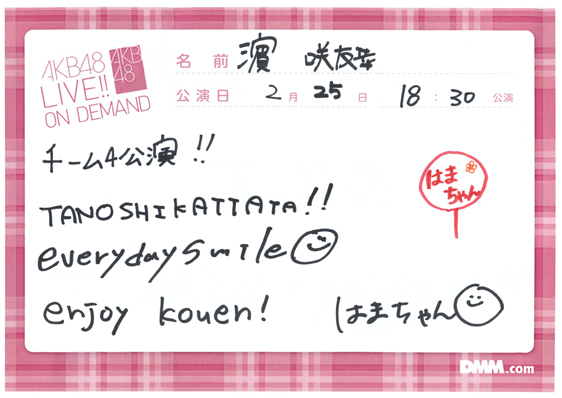 AKB48
LIVE!!
ON DEMAND
AKB
48
名前 濵 咲友菜
公演日 2月 25日 18:30 公演
チーム4公演!!
はま
ちゃん
TANOSHIKATTATA!!
everyday smile
enjoy kouen! はまちゃん
DMM.com